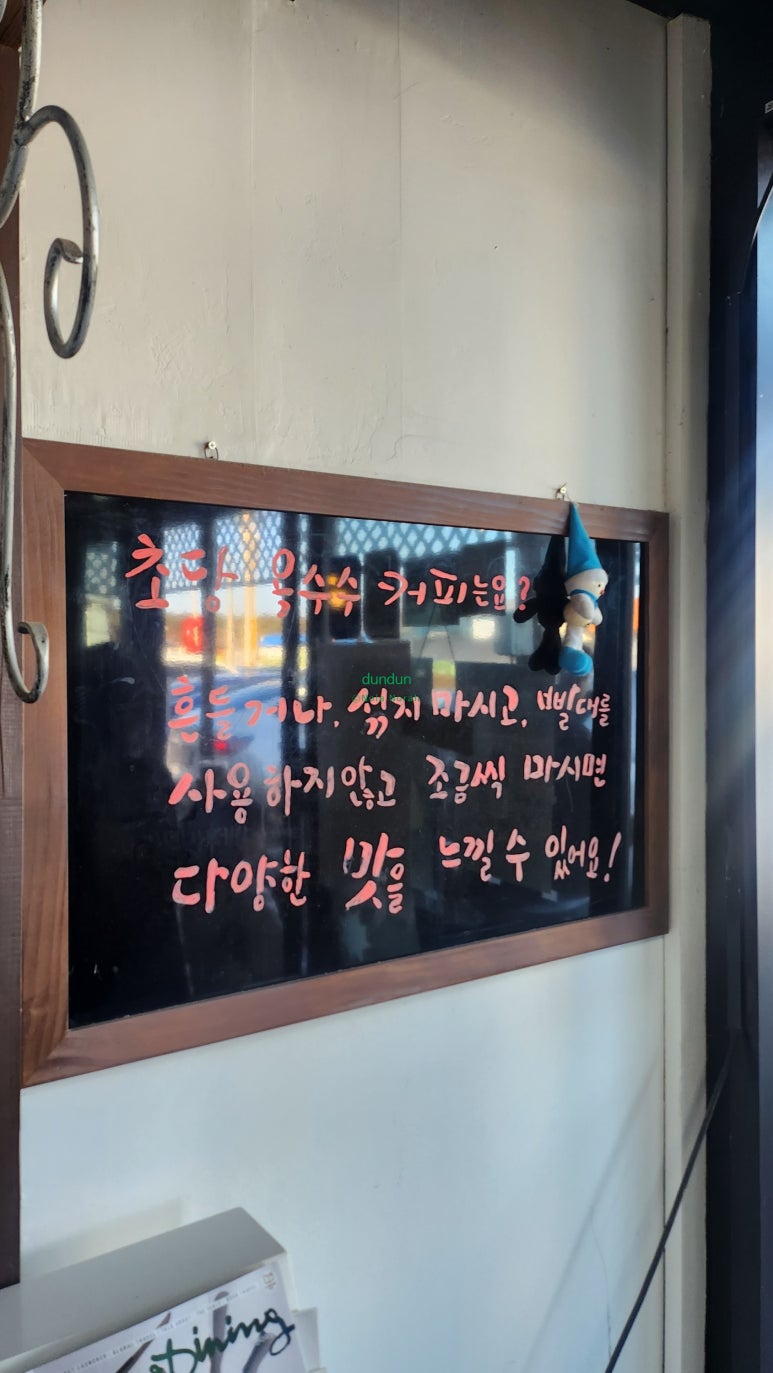 초당 옥수수 커피는요?
dundun
흔들거나, 섞지 마시고, 빨대를
사용하지않고 조금씩 마시면
다양한 맛을 느낄 수 있어요!
Dining